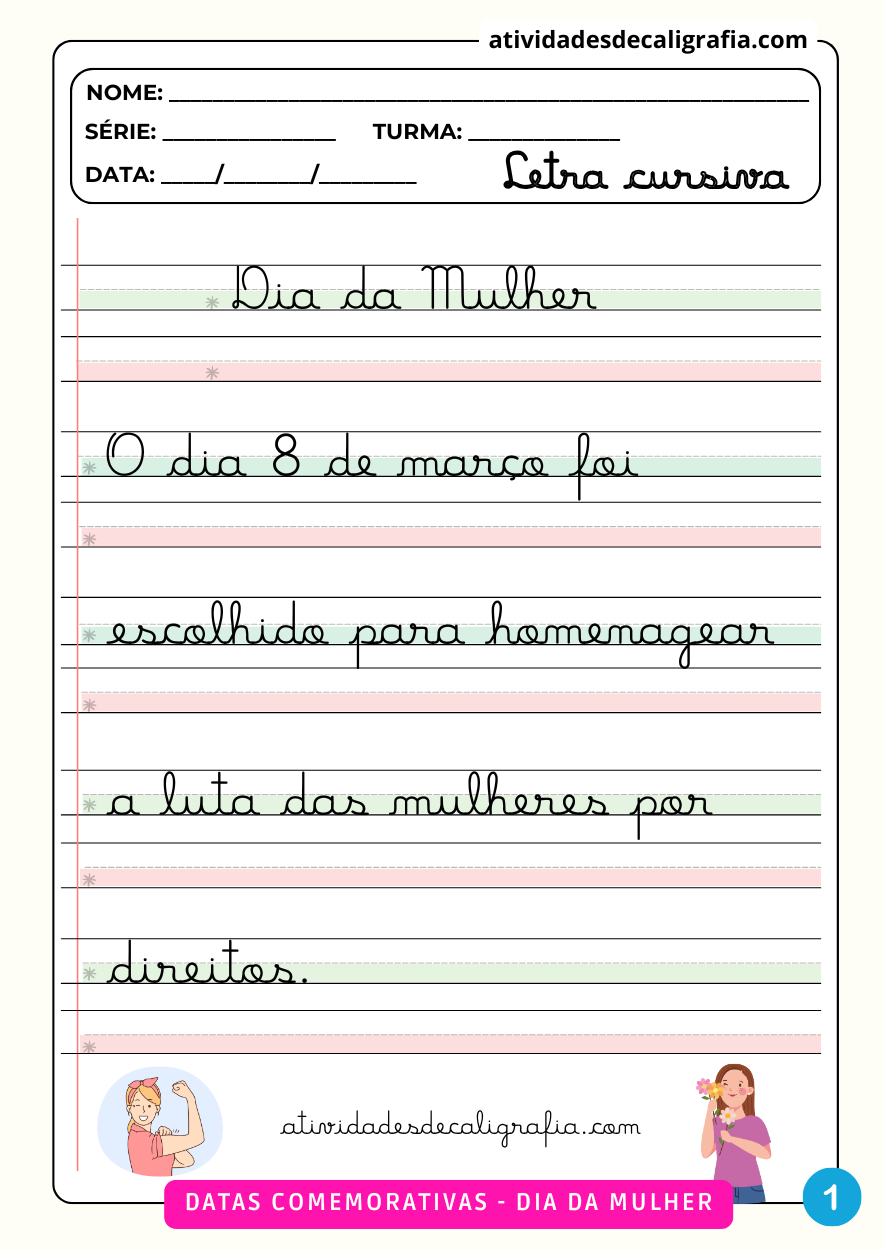 atividadesdecaligrafia.com
NOME: ____________________
SÉRIE: __________ TURMA: __________
DATA: _____/________/_________ Letra cursiva
* Dia da Mulher
*
* O dia 8 de março foi
*
* escolhido para homenagear
*
* a luta das mulheres por
*
* direitos.
*
atividadesdecaligrafia.com
DATAS COMEMORATIVAS - DIA DA MULHER
1